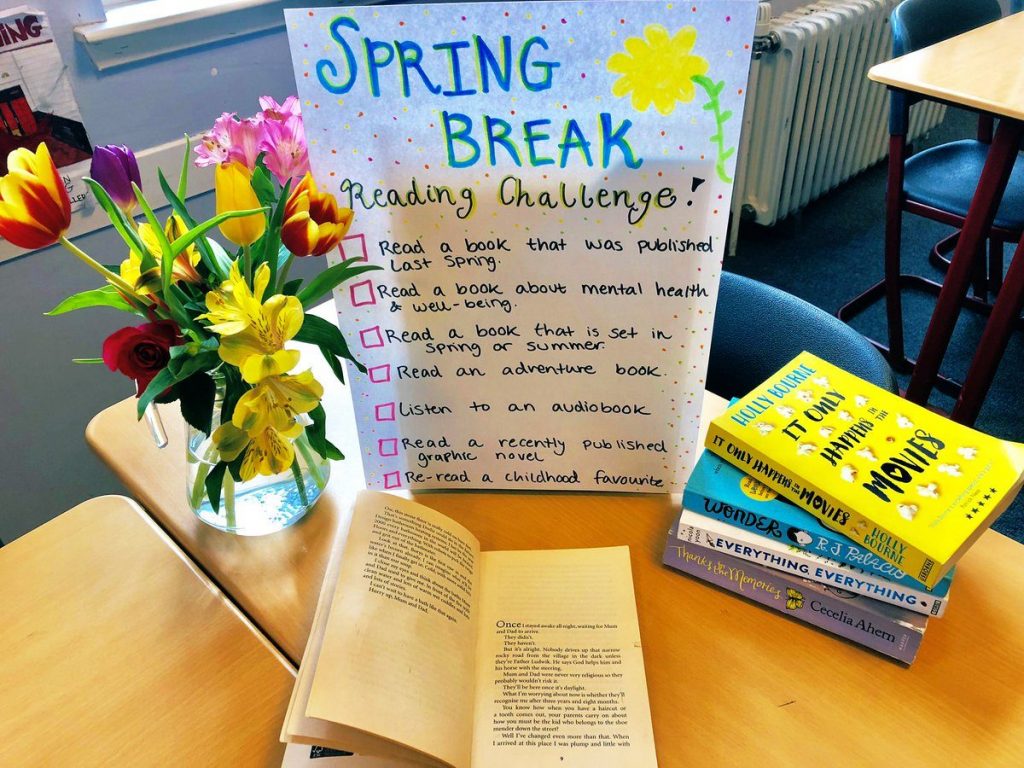 ING
SPRING
BREAK
Reading Challenge!
Read a book that was published
Last Spring.
Read a book about mental health
& well-being.
Read a book that is set in
Spring or summer.
Read an adventure book.
Listen to an audiobook
Read a recently published
graphic novel
Re-read a childhood favourite
HOLLY BOURNE
IT ONLY
HAPPENS IN
THE
MOVIES
IT ONLY HAPPENS IN THE MOVIES
HOLLY BOURNE
WONDER
R J PALACIO
nicola yoon
EVERYTHING, EVERYTHING
Thanks for the Memories
Cecelia Ahern
I close my eyes and think about the baths Mum
and Dad used to give me. In front of the fire with
clean water and lots of warm wet cuddles and lots
and lots of stories.
I can't wait to have a bath like that again.
Hurry up, Mum and Dad.
Once I stayed awake all night, waiting for Mum
and Dad to arrive.
They didn't.
They haven't.
But it's alright. Nobody drives up that narrow
rocky road from the village in the dark unless
they're Father Ludwik. He says God helps him and
his horse with the steering.
Mum and Dad were never very religious so they
probably wouldn't risk it.
They'll be here once it's daylight.
What I'm worrying about now is whether they'll
recognise me after three years and eight months.
You know how when you have a haircut or
a tooth comes out, your parents carry on about
how you must be the kid who belongs to the shoe
mender down the street?
Well I've changed even more than that. When
I arrived at this place I was plump and little with
9